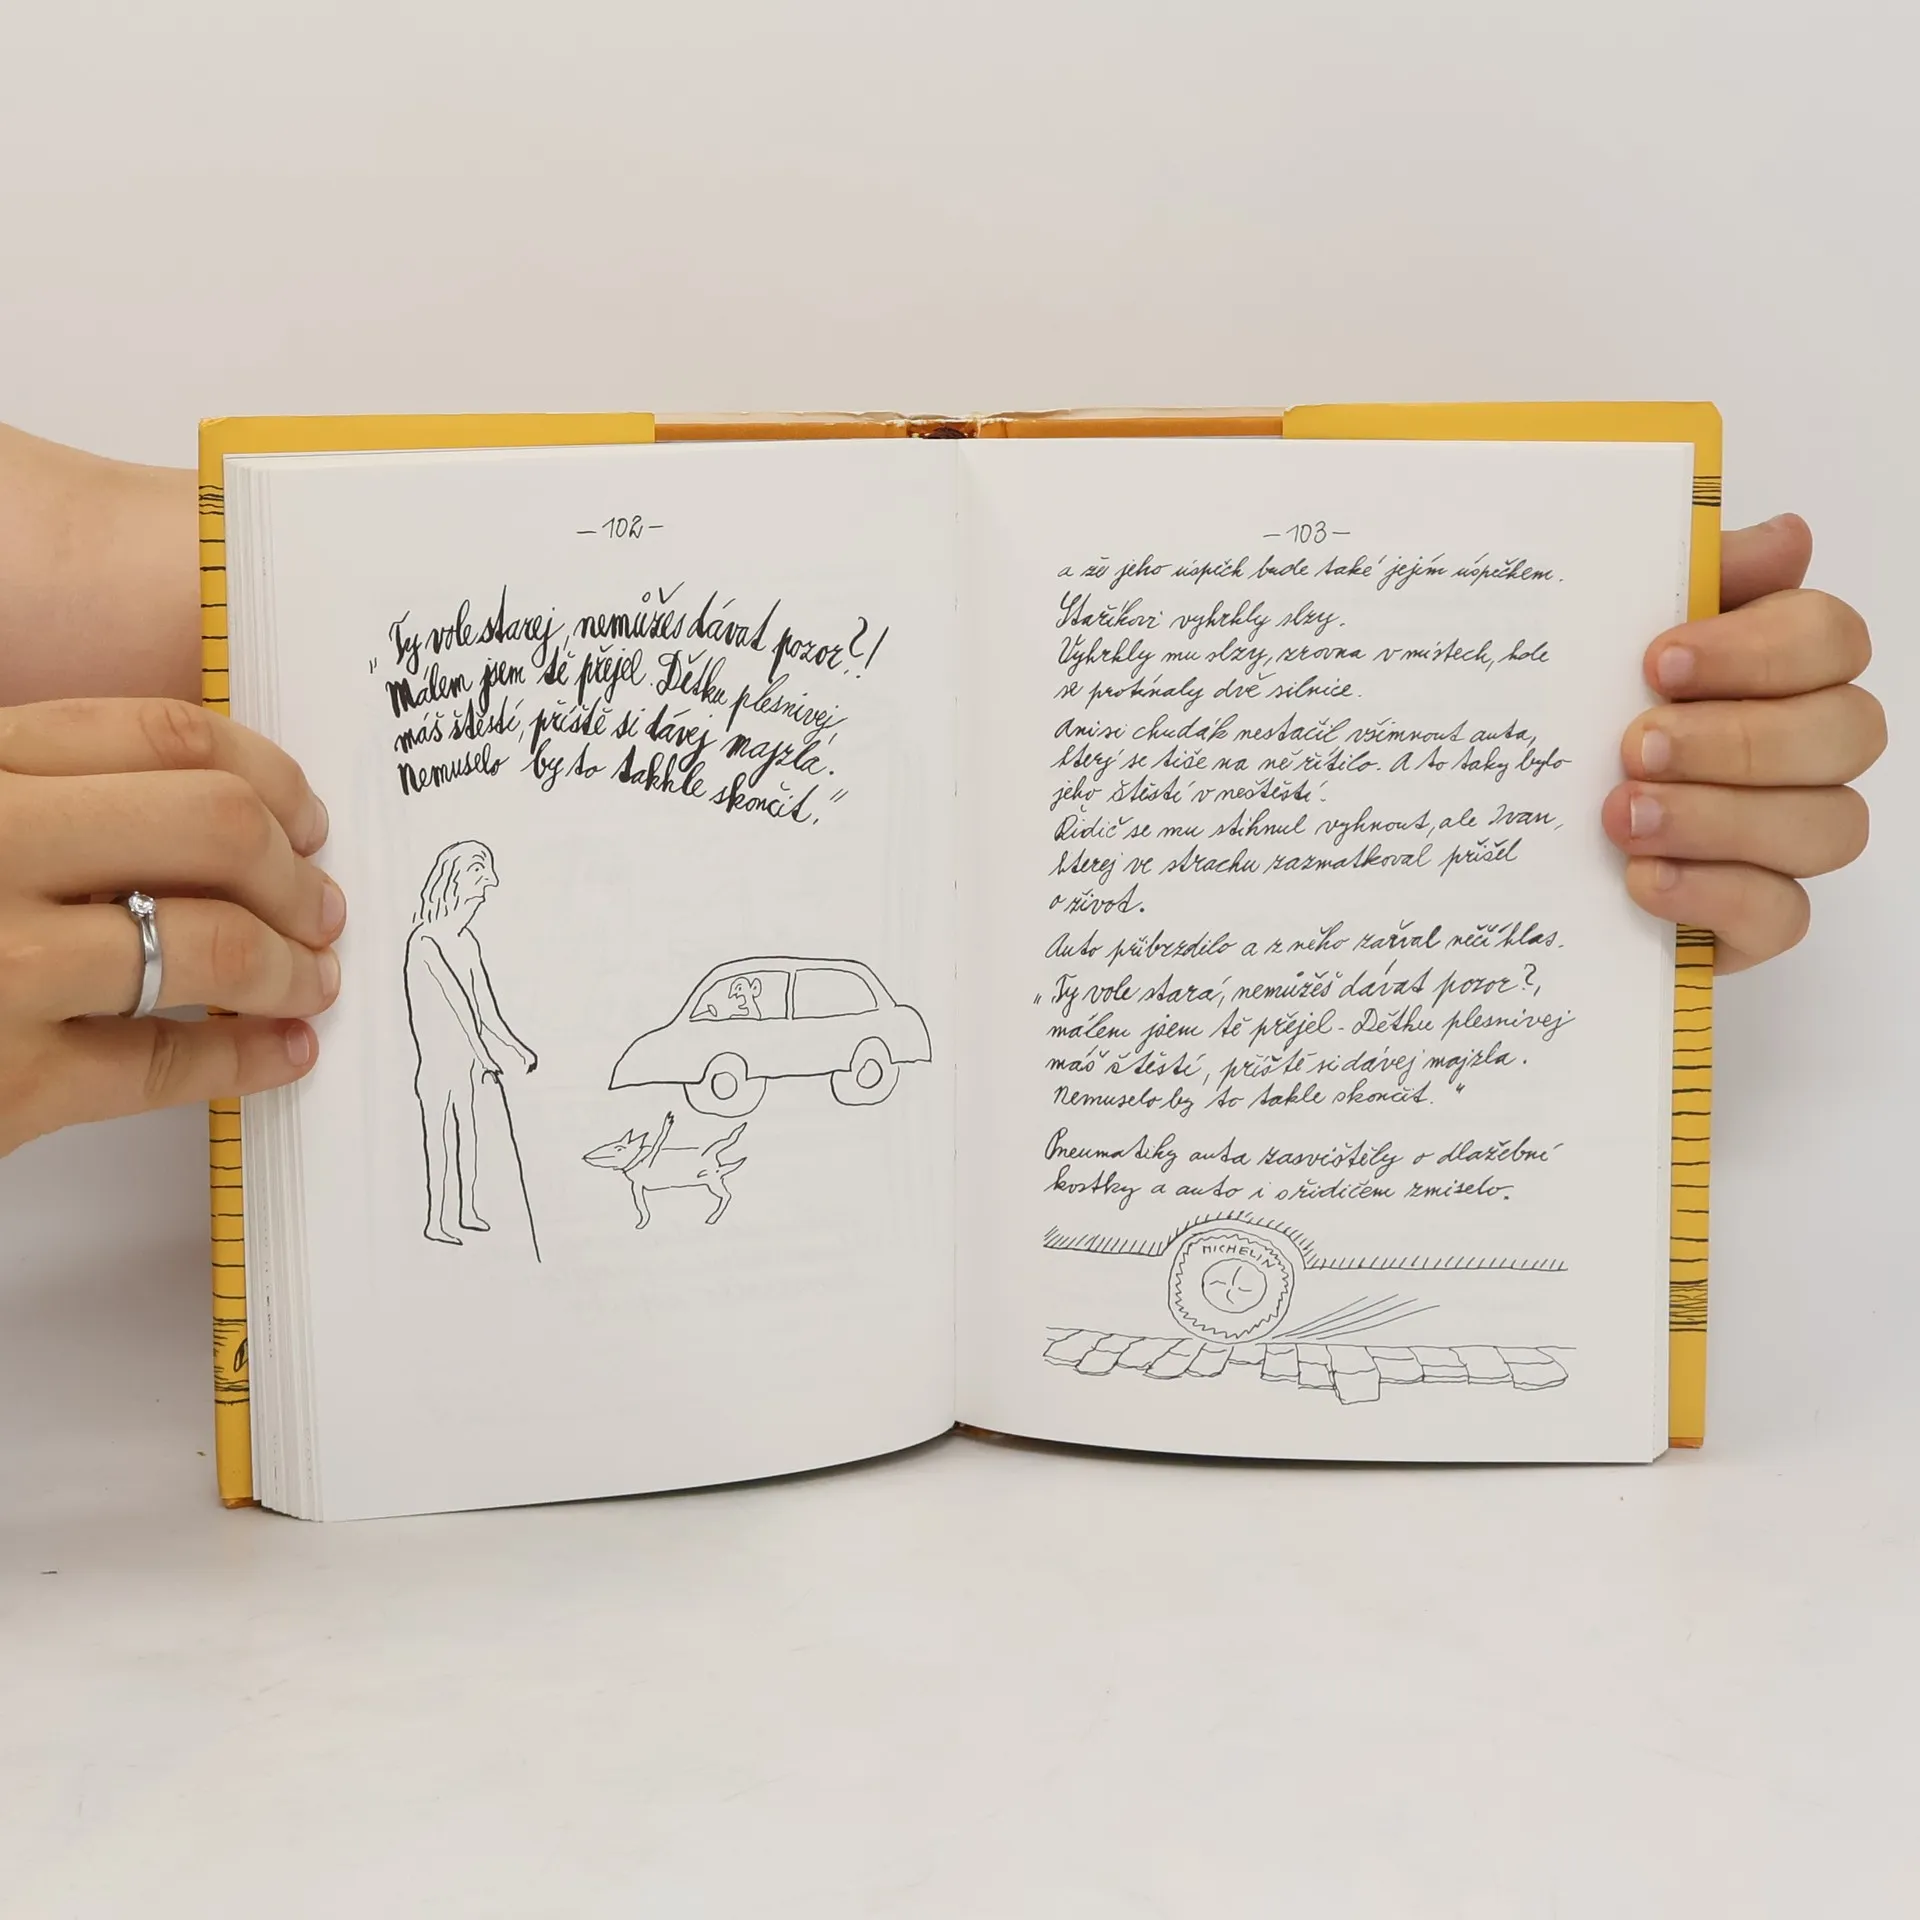 — 102 —
„Ty vole starej, nemůžeš dávat pozor?!
Málem jsem tě přejel. Dětku plesnivej,
máš štěstí, příště si dávej majzla.
Nemuselo by to takhle skončit.“
— 103 —
a že jeho úspěch bude také jejím úspěchem.
Staříkovi vyhrkly slzy.
Vyhrkly mu slzy, zrovna v místech, kde
se protínaly dvě silnice.
Ani si chudák nestačil všimnout auta,
který se tiše na ně řítilo. A to taky bylo
jeho štěstí v neštěstí.
Řidič se mu stihnul vyhnout, ale Ivan,
kterej ve strachu zazmatkoval přišel
o život.
Auto přibrzdilo a z něho zařval něčí hlas.
„Ty vole stará, nemůžeš dávat pozor?,
málem jsem tě přejel - Dětku plesnivej
máš štěstí, příště si dávej majzla.
Nemuselo by to takle skončit.“
Pneumatiky auta zasvištěly o dlažební
kostky a auto i s řidičem zmizelo.
MICHELIN